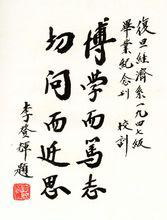 復旦經濟系一九四七級
畢業紀念刊 校訓
博學而篤志
切问而近思
李登輝題